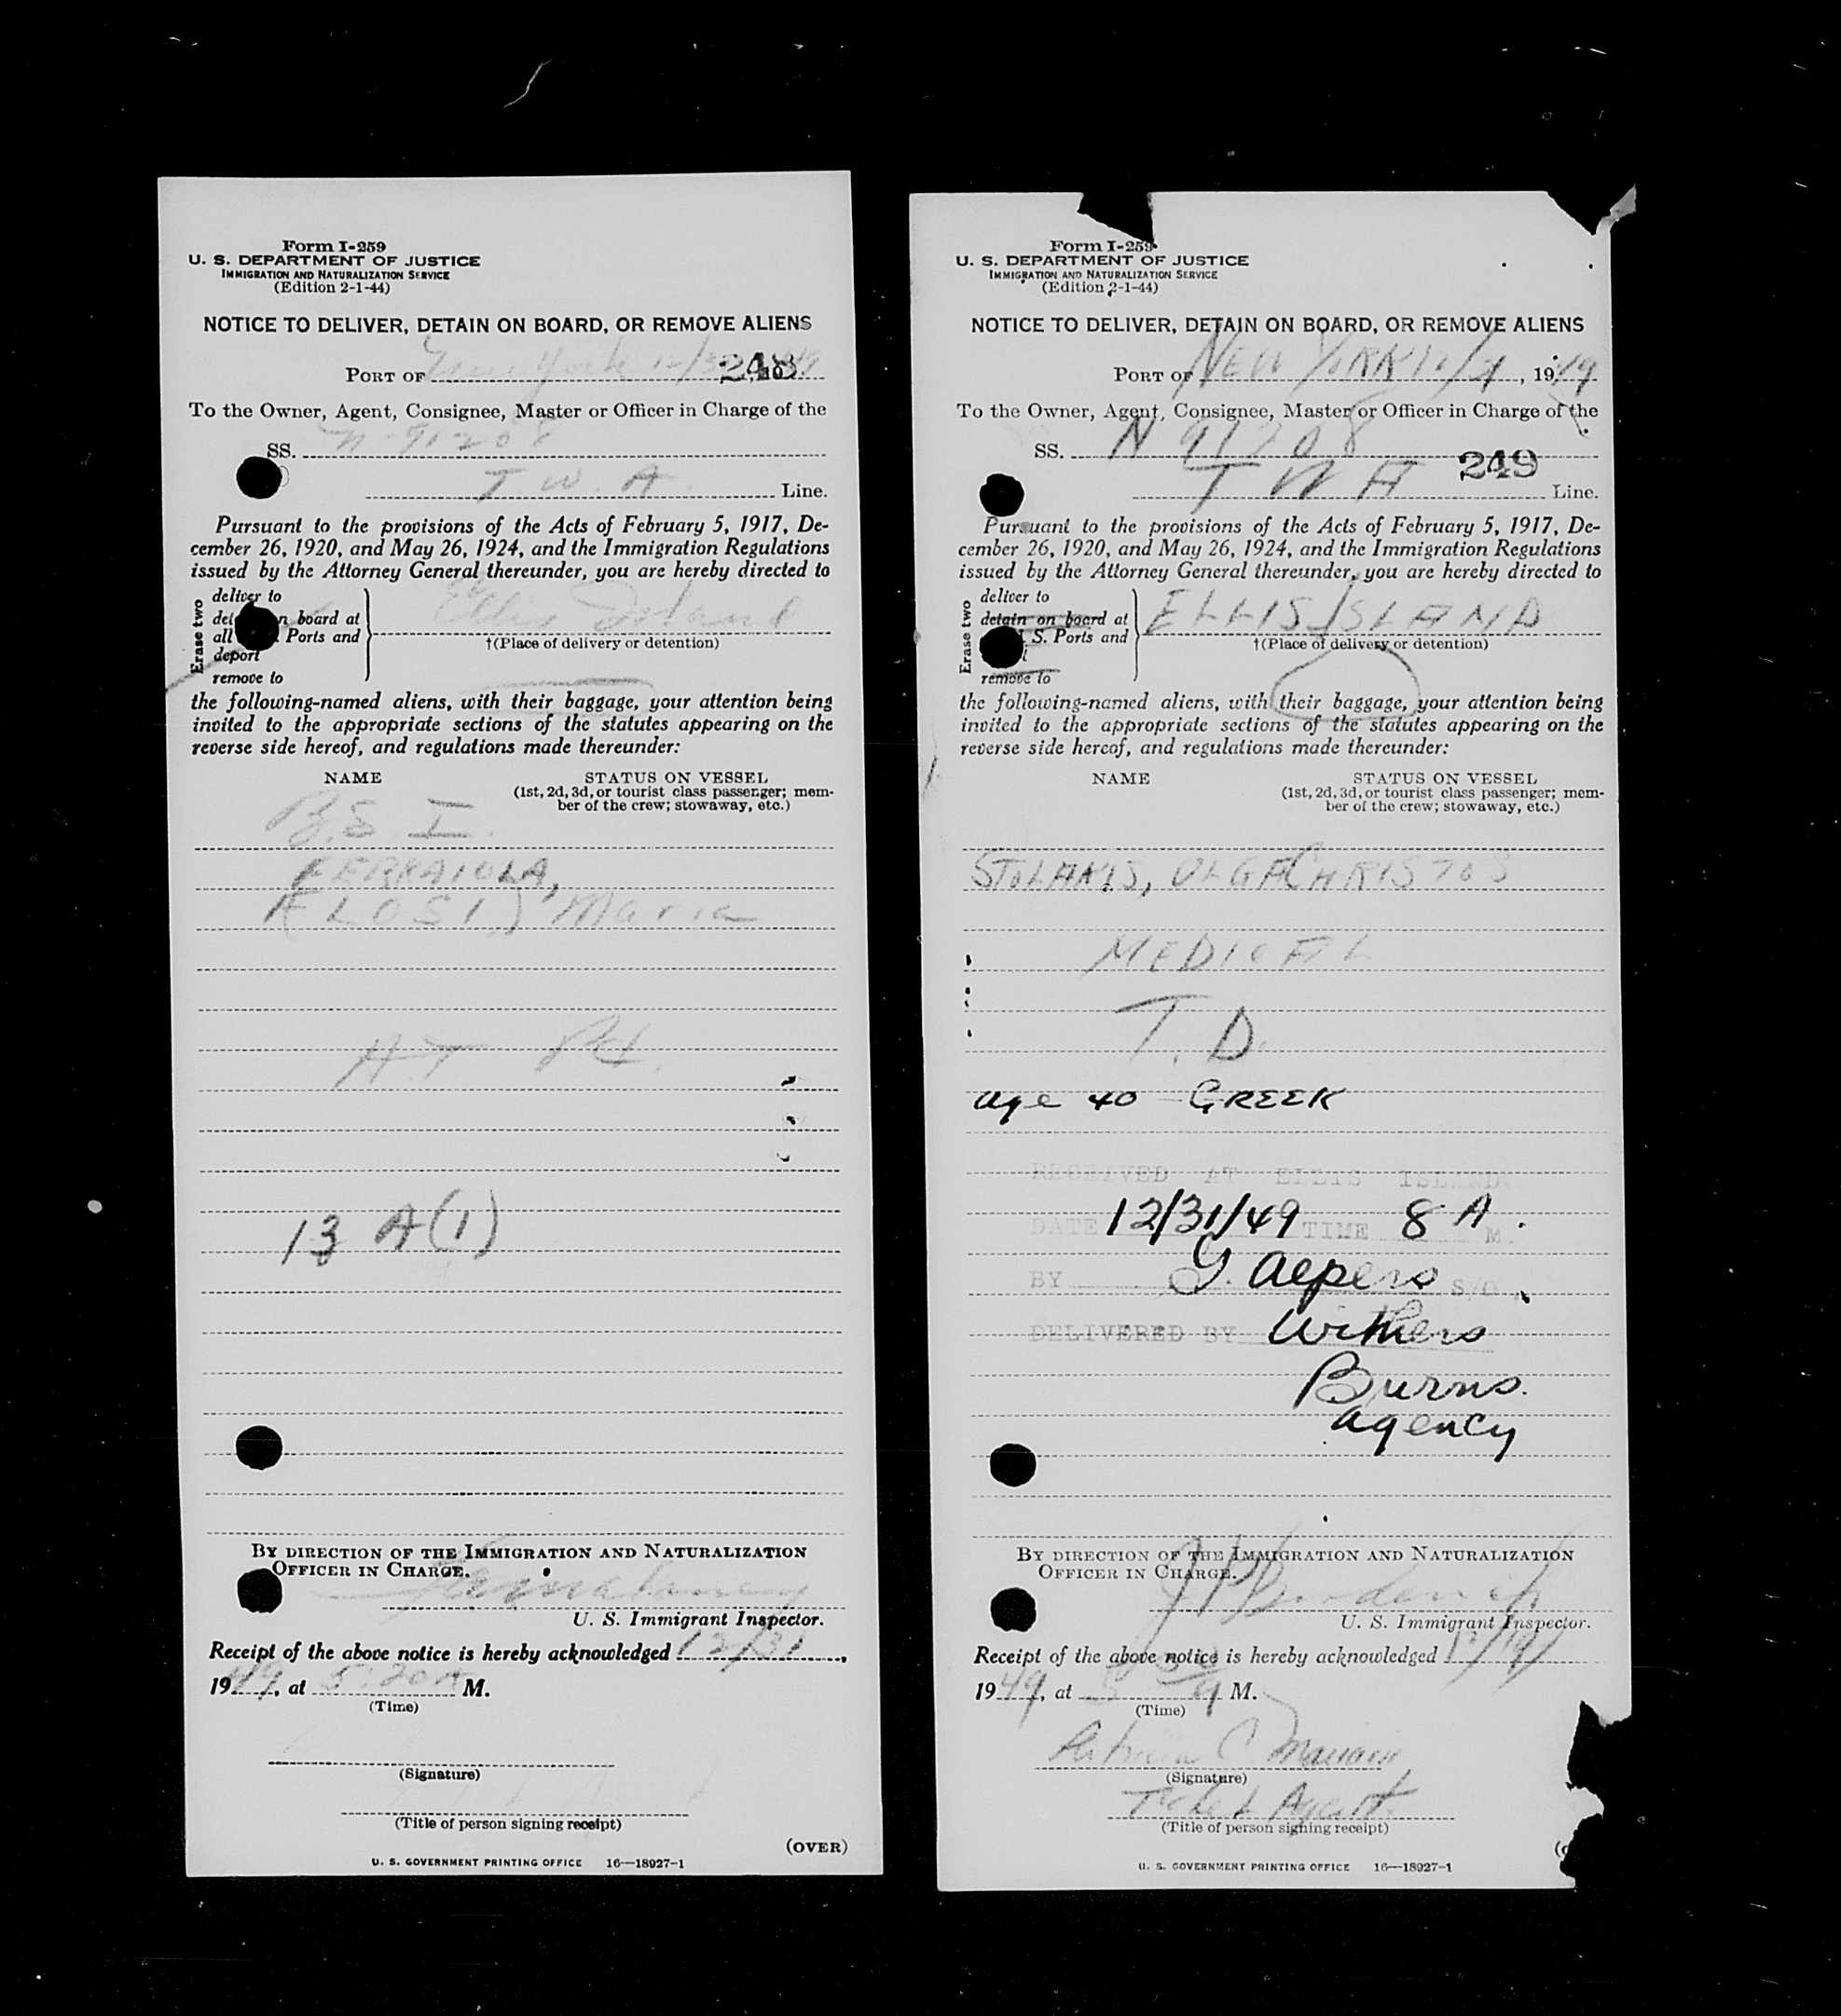 Form I-259
U. S. DEPARTMENT OF JUSTICE
IMMIGRATION AND NATURALIZATION SERVICE
(Edition 2-1-44)
NOTICE TO DELIVER, DETAIN ON BOARD, OR REMOVE ALIENS
PORT OF New York 12/
248
To the Owner, Agent, Consignee, Master or Officer in Charge of the
SS. N-91208
T. W. A. Line.
Pursuant to the provisions of the Acts of February 5, 1917, De-
cember 26, 1920, and May 26, 1924, and the Immigration Regulations
issued by the Attorney General thereunder, you are hereby directed to
Erase two
deliver to
n board at
all Ports and
deport
remove to
Ellis Island
†(Place of delivery or detention)
the following-named aliens, with their baggage, your attention being
invited to the appropriate sections of the statutes appearing on the
reverse side hereof, and regulations made thereunder:
NAME STATUS ON VESSEL
(1st, 2d, 3d, or tourist class passenger; mem-
ber of the crew; stowaway, etc.)
B.S I.
FERRAIOLA,
(LOSI) Maria
H.T Pd.
13 A(1)
BY DIRECTION OF THE IMMIGRATION AND NATURALIZATION
OFFICER IN CHARGE.
U. S. Immigrant Inspector.
Receipt of the above notice is hereby acknowledged 12/31,
1949, at 5:20 A M.
(Time)
(Signature)
(Title of person signing receipt)
(OVER)
U. S. GOVERNMENT PRINTING OFFICE 16—18927-1
Form I-259
U. S. DEPARTMENT OF JUSTICE
IMMIGRATION AND NATURALIZATION SERVICE
(Edition 2-1-44)
NOTICE TO DELIVER, DETAIN ON BOARD, OR REMOVE ALIENS
PORT OF NEW YORK , 1949
To the Owner, Agent, Consignee, Master or Officer in Charge of the
SS. N 91208
249
T W A Line.
Pursuant to the provisions of the Acts of February 5, 1917, De-
cember 26, 1920, and May 26, 1924, and the Immigration Regulations
issued by the Attorney General thereunder, you are hereby directed to
Erase two
deliver to
detain on board at
S. Ports and
remove to
ELLIS ISLAND
†(Place of delivery or detention)
the following-named aliens, with their baggage, your attention being
invited to the appropriate sections of the statutes appearing on the
reverse side hereof, and regulations made thereunder:
NAME STATUS ON VESSEL
(1st, 2d, 3d, or tourist class passenger; mem-
ber of the crew; stowaway, etc.)
OLGA CHRISTOS
MEDICAL
T. D.
age 40 GREEK
RECEIVED AT ELLIS ISLAND
DATE 12/31/49 TIME 8 A. M.
BY G. Alpers S/O
DELIVERED BY Withers
Burns.
agency
BY DIRECTION OF THE IMMIGRATION AND NATURALIZATION
OFFICER IN CHARGE.
U. S. Immigrant Inspector.
Receipt of the above notice is hereby acknowledged
1949, at M.
(Time)
(Signature)
Ticket Agent.
(Title of person signing receipt)
U. S. GOVERNMENT PRINTING OFFICE 16—18927-1